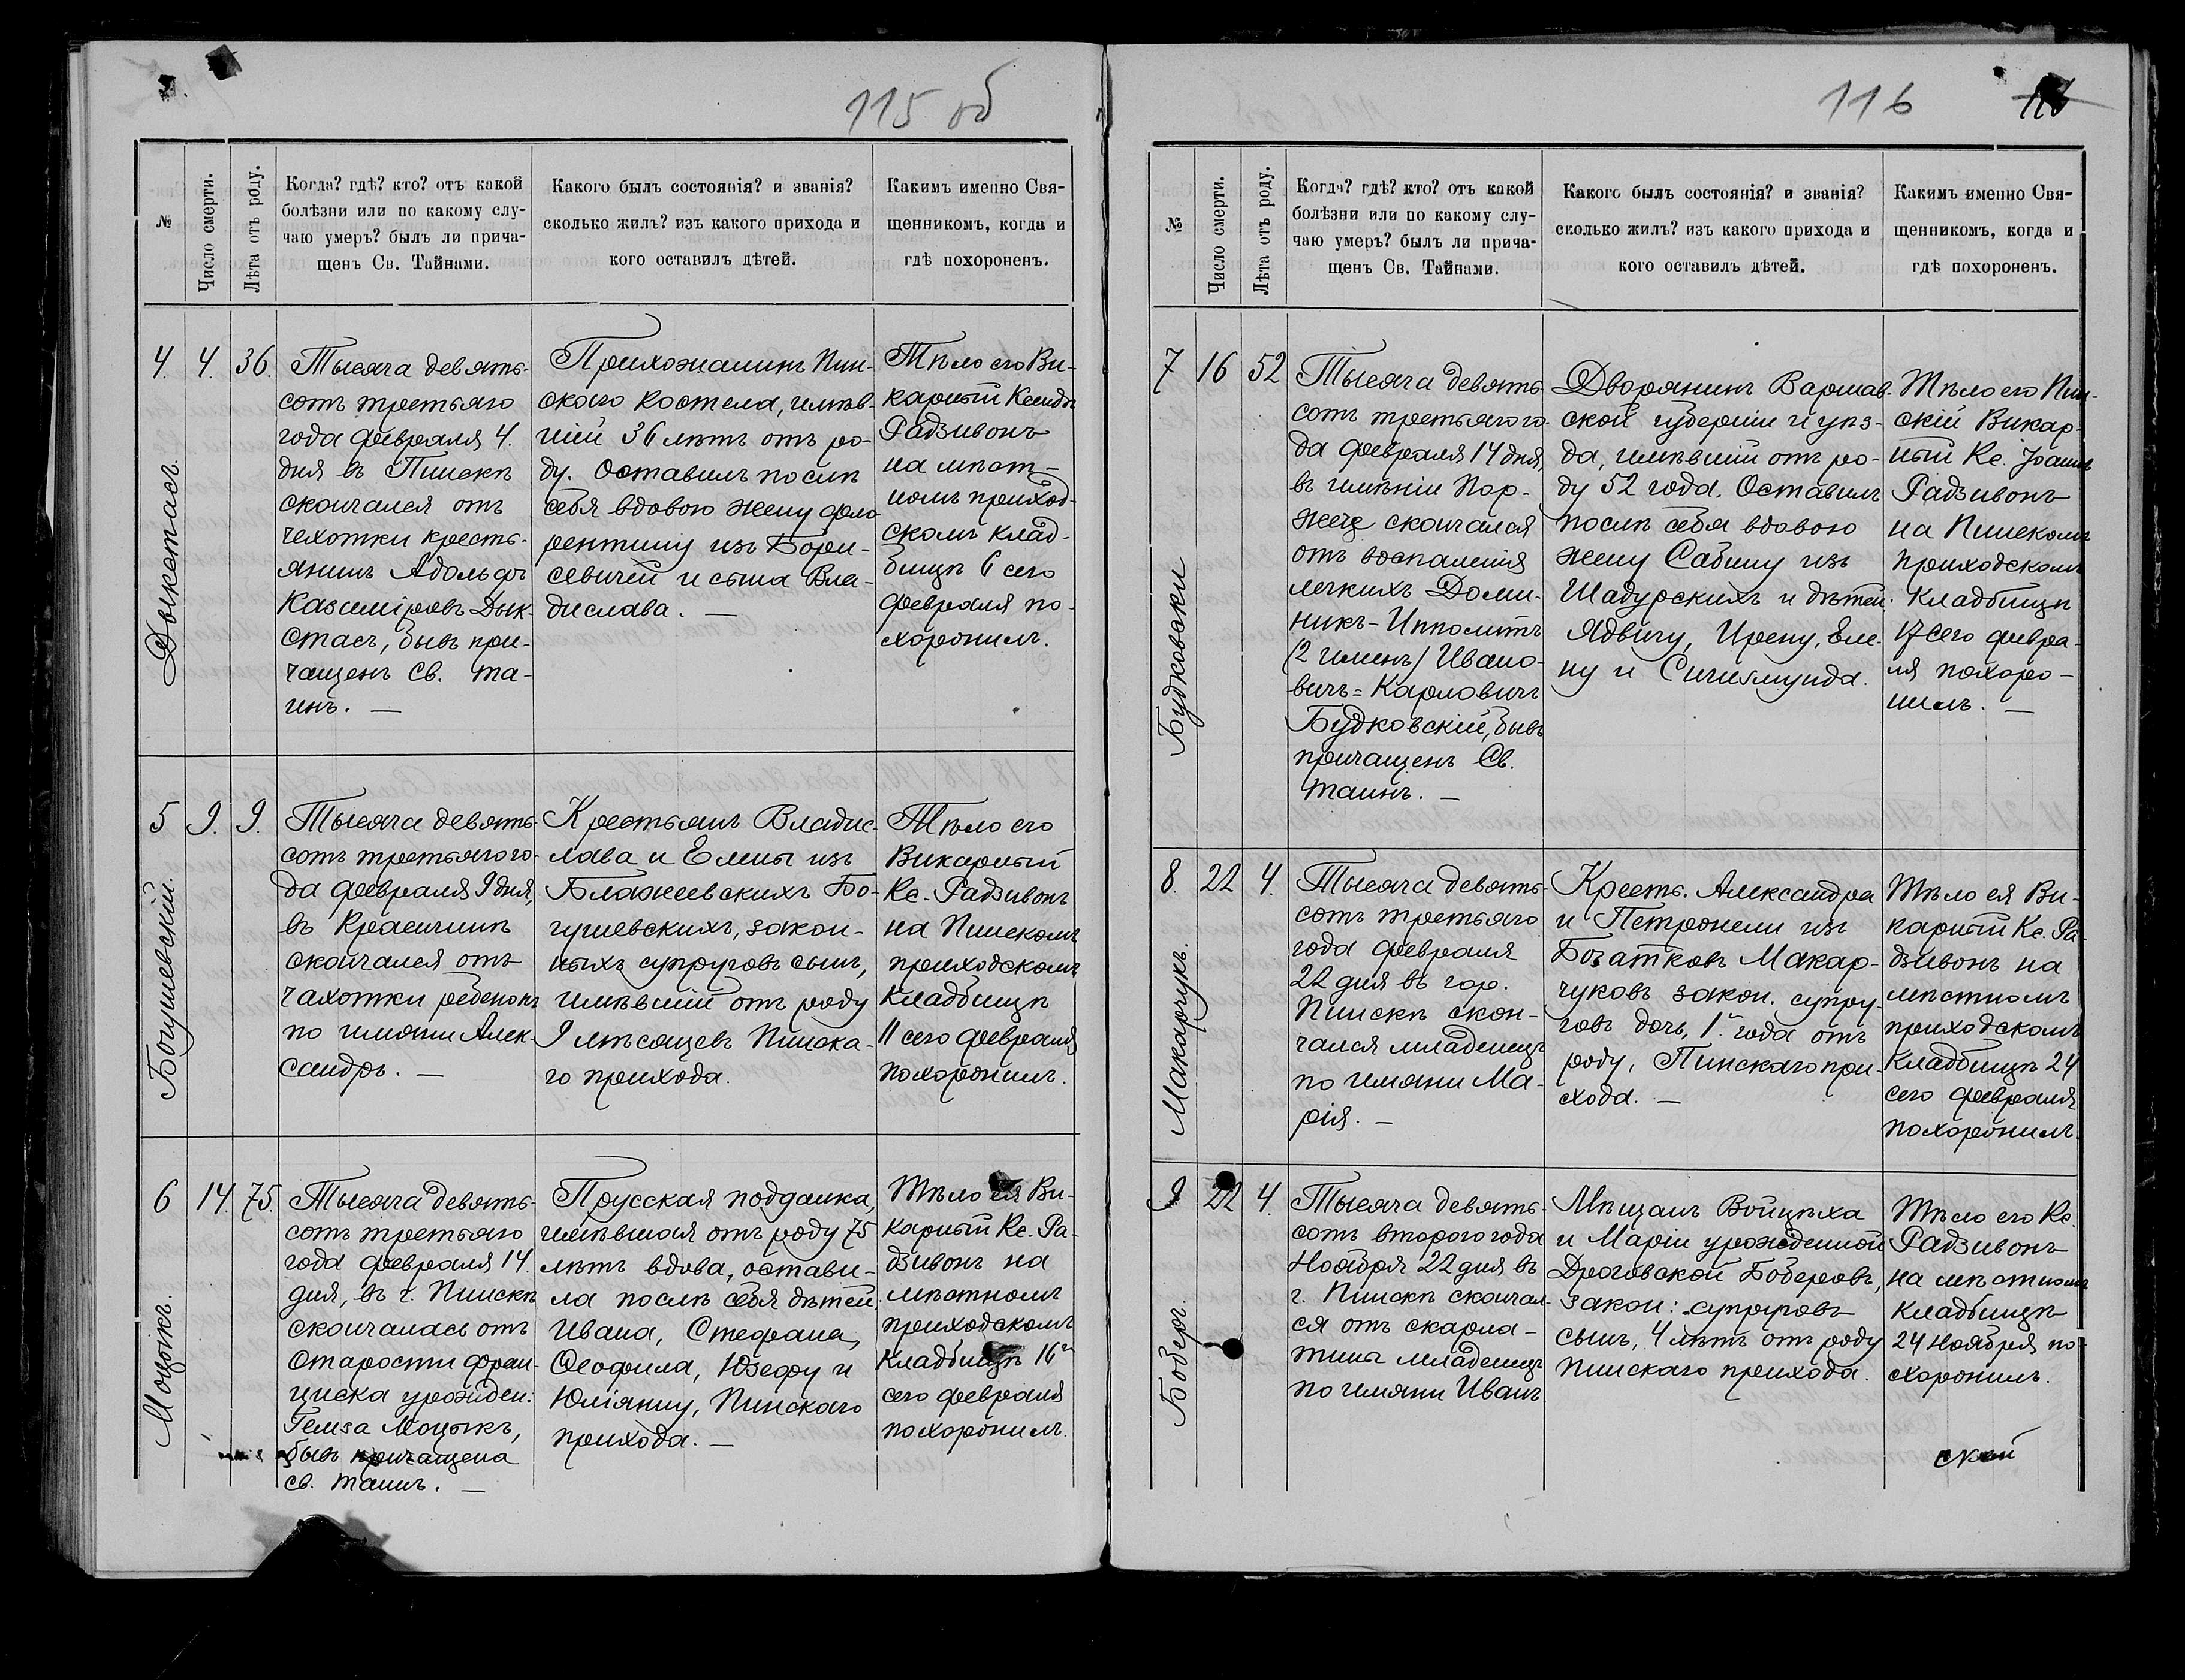 115 об
№
Число смерти.
Лѣта отъ роду.
Когда? гдѣ? кто? отъ какой
болѣзни или по какому слу-
чаю умеръ? былъ ли прича-
щенъ Св. Тайнами.
Какого былъ состоянія? и званія?
сколько жилъ? изъ какого прихода и
кого оставилъ дѣтей.
Какимъ именно Свя-
щенникомъ, когда и
гдѣ похороненъ.
4. 4. 36.
Дыкстасъ.
Тысяча девять-
сотъ третьяго
года февраля 4.
дня въ Пинскѣ
скончался отъ
чехотки кресть-
янинъ Адольфъ
Казиміровъ Дык-
стасъ, бывъ при-
чащенъ Св. та-
инъ. —
Прихожанинъ Пин-
скаго костела, имѣв-
шій 36 лѣтъ отъ ро-
ду. Оставилъ послѣ
себя вдовою жену Фло-
рентину изъ Бори-
севичей и сына Вла-
дислава. —
Тѣло его Ви-
карный Ксендзъ
Радзивонъ
на мѣст-
номъ приход-
скомъ клад-
бищѣ 6 сего
февраля по-
хоронилъ.
5 9. 9.
Богушевскій.
Тысяча девять-
сотъ третьяго го-
да февраля 9 дня,
въ Красичинѣ
скончался отъ
чахотки ребенокъ
по имяни Алек-
сандръ. —
Крестьянъ Владис-
лава и Елены изъ
Блажеевскихъ Бо-
гушевскихъ, закон-
ныхъ супруговъ сынъ,
имѣвшій отъ роду
9 мѣсяцевъ Пинска-
го прихода.
Тѣло его
Викарный
Кс. Радзивонъ
на Пинскомъ
приходскомъ
кладбищѣ
11 сего февраля
похоронилъ.
6 14. 75.
Моцокъ.
Тысяча девять-
сотъ третьяго
года февраля 14.
дня, въ г. Пинскѣ
скончалась отъ
старости Фран-
циска урожден:
Гемза Моцокъ,
бывъ причащена
св. таинъ. —
Прусская подданка,
имѣвшая отъ роду 75
лѣтъ вдова, остави-
ла послѣ себя дѣтей:
Ивана, Стефана,
Ѳеофила, Юзефу и
Юліянну, Пинскаго
прихода. —
Тѣло ея Ви-
карный Кс. Ра-
дзивонъ на
мѣстномъ
приходскомъ
кладбищѣ 16
сего февраля
похоронилъ.
116
116
№
Число смерти.
Лѣта отъ роду.
Когда? гдѣ? кто? отъ какой
болѣзни или по какому слу-
чаю умеръ? былъ ли прича-
щенъ Св. Тайнами.
Какого былъ состоянія? и званія?
сколько жилъ? изъ какого прихода и
кого оставилъ дѣтей.
Какимъ именно Свя-
щенникомъ, когда и
гдѣ похороненъ.
7 16 52
Будковски
Тысяча девять
сотъ третьяго го-
да февраля 14 дня,
въ имѣніи Пор-
жече скончался
отъ воспаленія
легкихъ Доми-
никъ-Ипполитъ
/2 именъ/ Ивано-
вичъ=Карловичъ
Будковскій, бывъ
причащенъ Св.
таинъ. —
Дворянинъ Варшав-
ской губерніи и уѣз-
да, имѣвшій отъ ро-
ду 52 года. Оставилъ
послѣ себя вдовою
жену Сабину изъ
Шадурскихъ и дѣтей:
Ядвигу, Ирену, Еле-
ну и Сигизмунда.
Тѣло его Пин-
скій Викар-
ный Кс. Іоаннъ
Радзивонъ
на Пинскомъ
приходскомъ
кладбищѣ
17 сего февра-
ля похоро-
нилъ. —
8. 22 4.
Макарчукъ.
Тысяча девять-
сотъ третьяго
года февраля
22 дня въ гор.
Пинскѣ скон-
чался младенецъ
по имяни Ма-
рія. —
Кресть. Александра
и Петронели изъ
Богатковъ Макар-
чуковъ закон. супру-
говъ дочь, 1. года отъ
роду, Пинскаго при-
хода. —
Тѣло ея Ви-
карный Кс. Ра-
дзивонъ на
мѣстномъ
приходскомъ
кладбищѣ 24
сего февраля
похоронилъ.
9 22 4.
Боберъ.
Тысяча девять-
сотъ второго года
Ноября 22 дня въ
г. Пинскѣ скончал-
ся отъ скарла-
тины младенецъ
по имяни Иванъ
Мѣщанъ Войцѣха
и Маріи урожденной
Драговской Боберовъ,
закон: супруговъ
сынъ, 4 лѣтъ отъ роду
Пинскаго прихода.
Тѣло его Кс.
Радзивонъ
на мѣстномъ
кладбищѣ
24 Ноября по-
хоронилъ.
ской